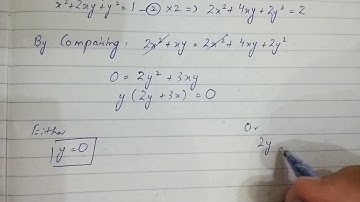 x²+2xy+y²=1 – ② ×2 ⇒ 2x²+4xy+2y²=2
By Comparing: 2x²+xy = 2x²+4xy+2y²
0 = 2y²+3xy
y(2y+3x)=0
Either Or
y=0 2y